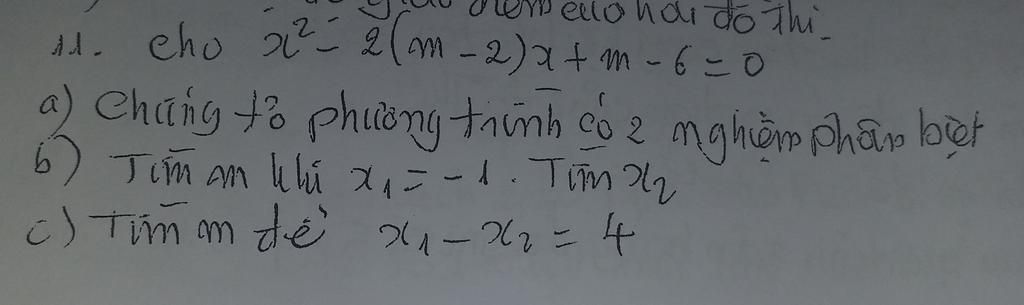 giao điểm của hai đồ thị.
11. cho x² - 2(m - 2)x + m - 6 = 0
a) Chứng tỏ phương trình có 2 nghiệm phân biệt
b) Tìm m khi x₁ = -1. Tìm x₂
c) Tìm m để x₁ - x₂ = 4